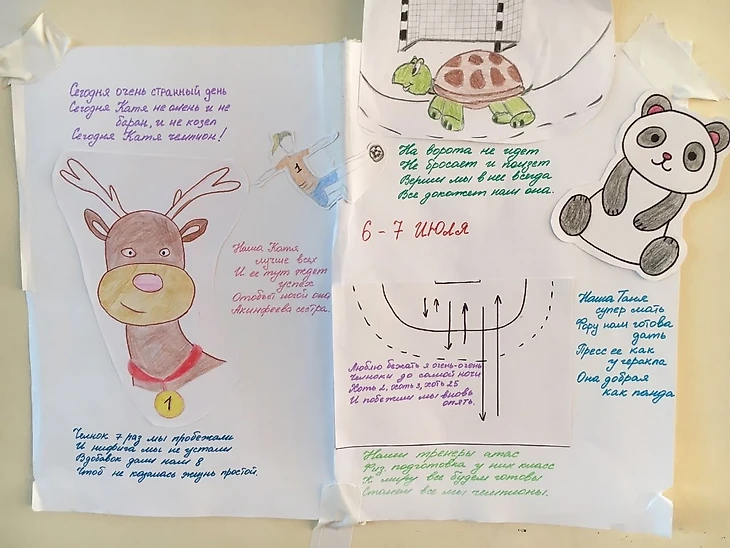 Сегодня очень странный день
Сегодня Катя не олень и не
баран, и не козел
Сегодня Катя чемпион!
1
На ворота не идет
Не бросает и ползет
Верим мы в нее всегда
Все докажет нам она.
6-7 ИЮЛЯ
Наша Катя
лучше всех
И ее тут ждет
успех
Отобьет ногой она
Акинфеева сестра.
1
Люблю бежать я очень-очень
Челноки до самой ночи
Хоть 2, хоть 3, хоть 25
И побежим мы вновь
опять.
Наша Таня
супер мать
Фору нам готова
дать
Пресс ее как
у геракла
Она добрая
как панда
Челнок 7 раз мы пробежали
И нифига мы не устали
Вдобавок дали нам 8
Чтоб не казалась жизнь простой.
Наши тренеры атас
Физ. подготовка у них класс
К миру все будем готовы
Станем все мы чемпионы.